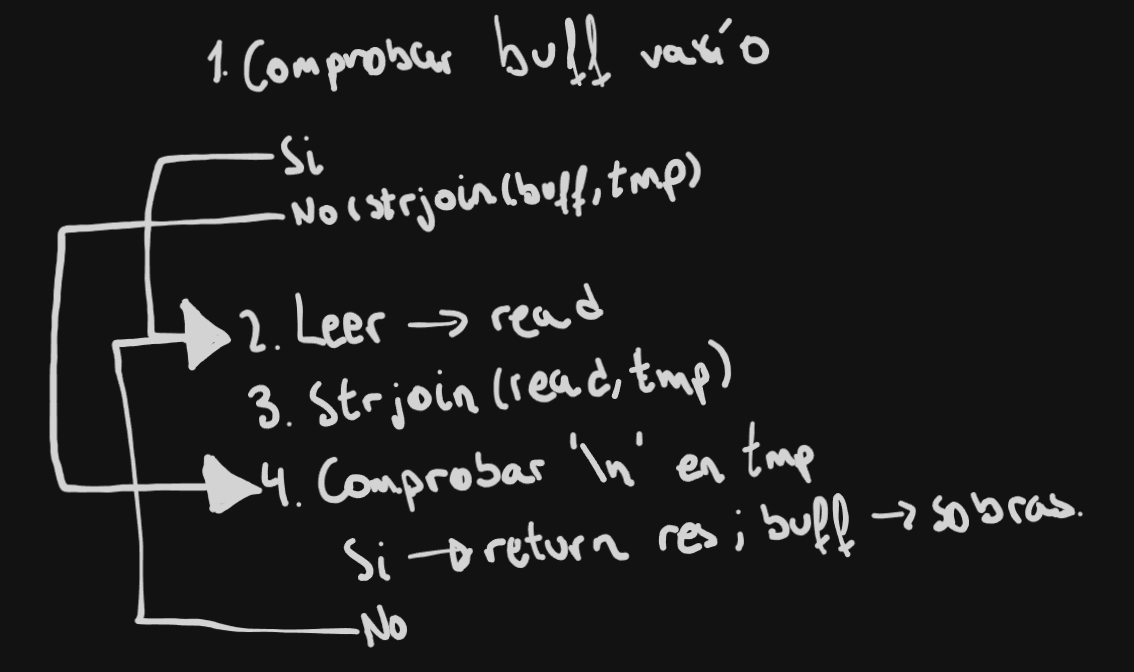 1. Comprobar buff vacío
Si
No (strjoin(buff, tmp)
2. Leer → read
3. Strjoin (read, tmp)
4. Comprobar '\n' en tmp
Si → return res ; buff → sobras.
No